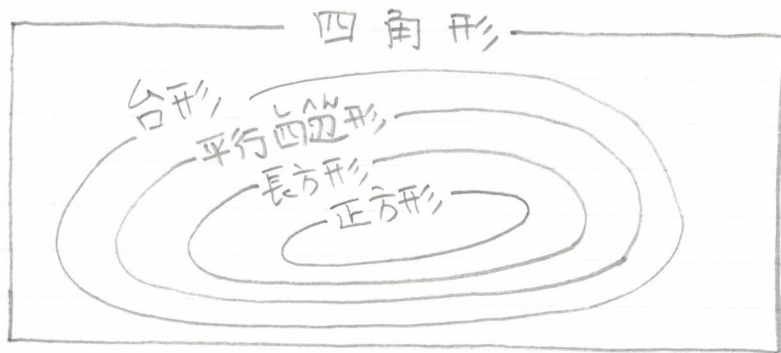 四角形
台形
平行四辺形
長方形
正方形